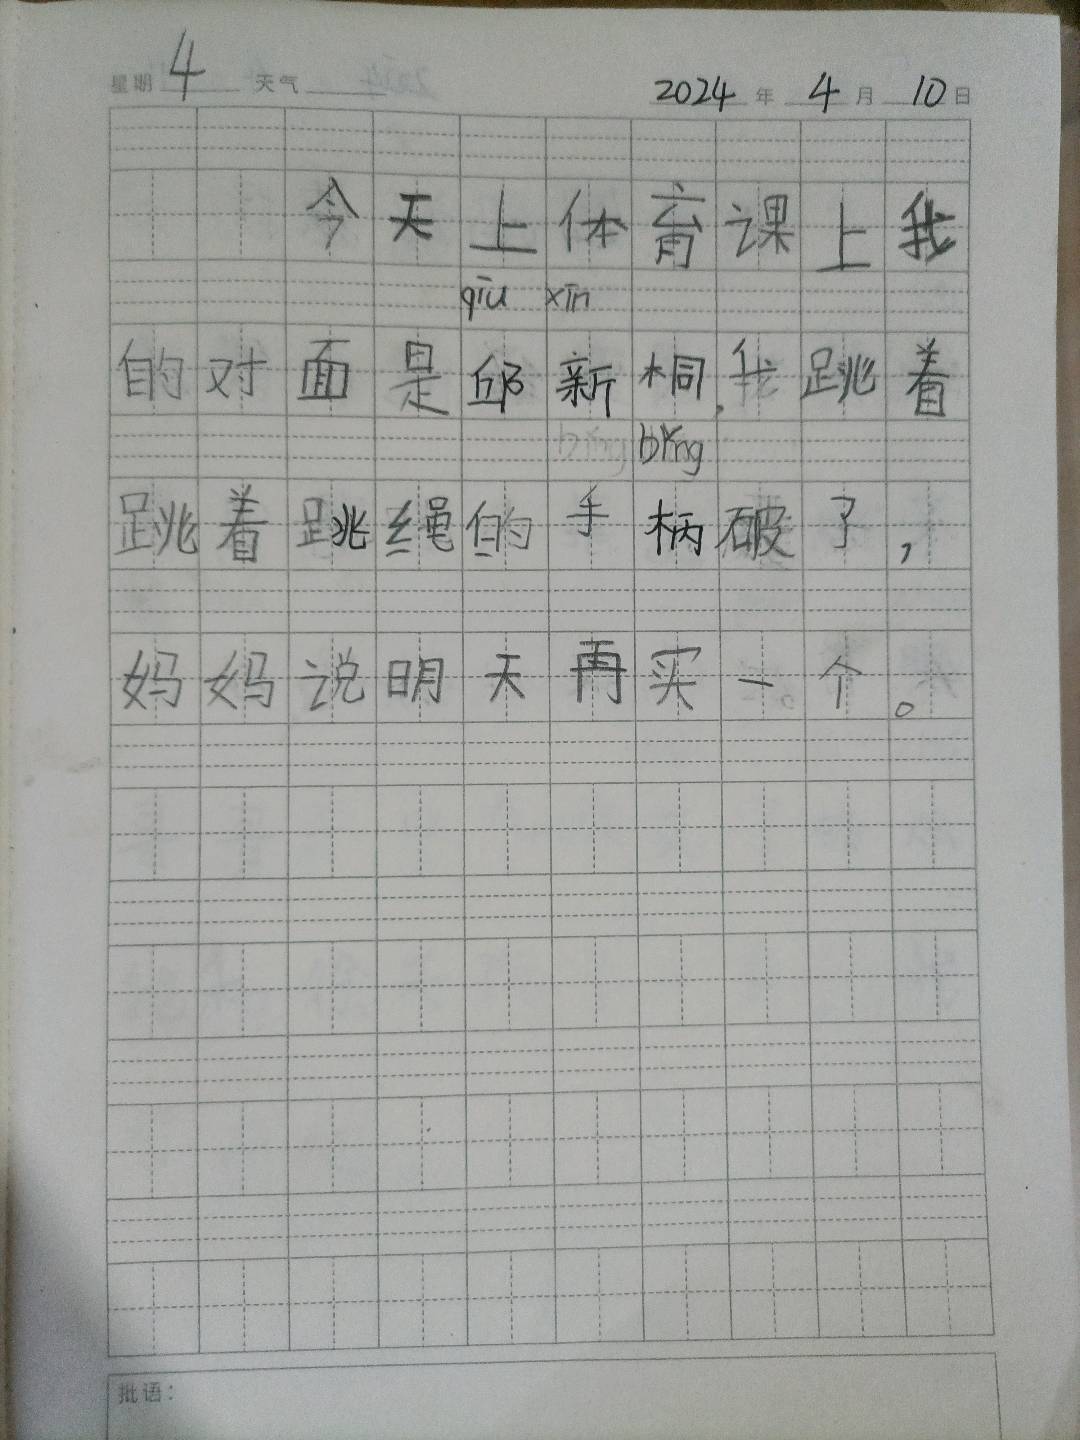 星期 4 天气 2024 年 4 月 10 日
今天上体育课上我
qīu xīn
的对面是邱新桐,我跳着
bǐng bǐng
跳着跳绳的手柄破了,
妈妈说明天再买一个。
批语: